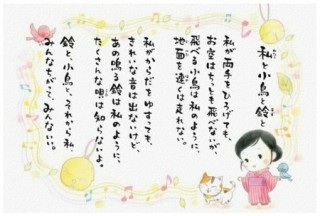 私と小鳥と鈴と
私が両手をひろげても、
お空はちっとも飛べないが、
飛べる小鳥は私のように、
地面を速くは走れない。
私がからだをゆすっても、
きれいな音は出ないけど、
あの鳴る鈴は私のように、
たくさんな唄は知らないよ。
鈴と、小鳥と、それから私、
みんなちがって、みんないい。